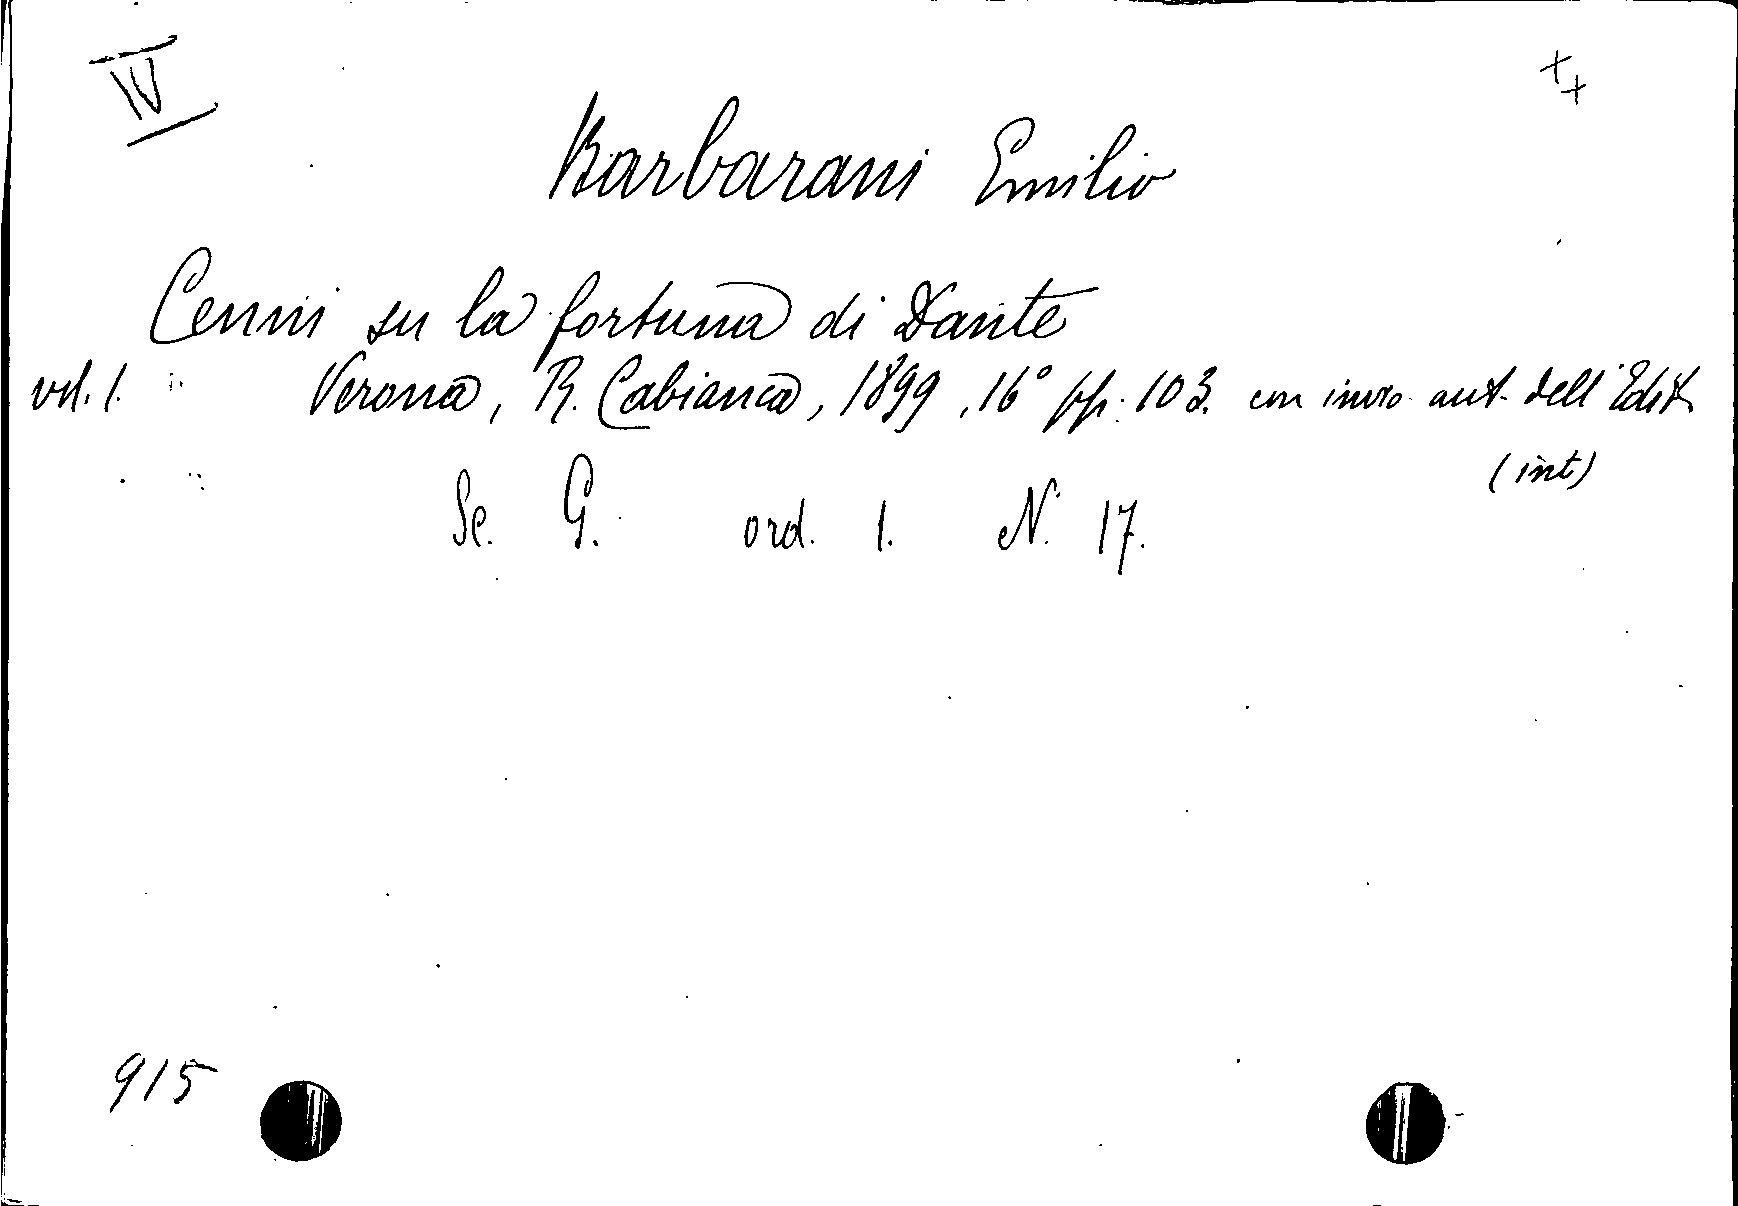 IV
++
Barbarani Emilio
Cenni su la fortuna di Dante
vol. 1. Verona, R. Cabianca, 1899, 16° pp. 103. con invio aut. dell'Edit.
(int)
Sc. G. ord. 1. N. 17.
915